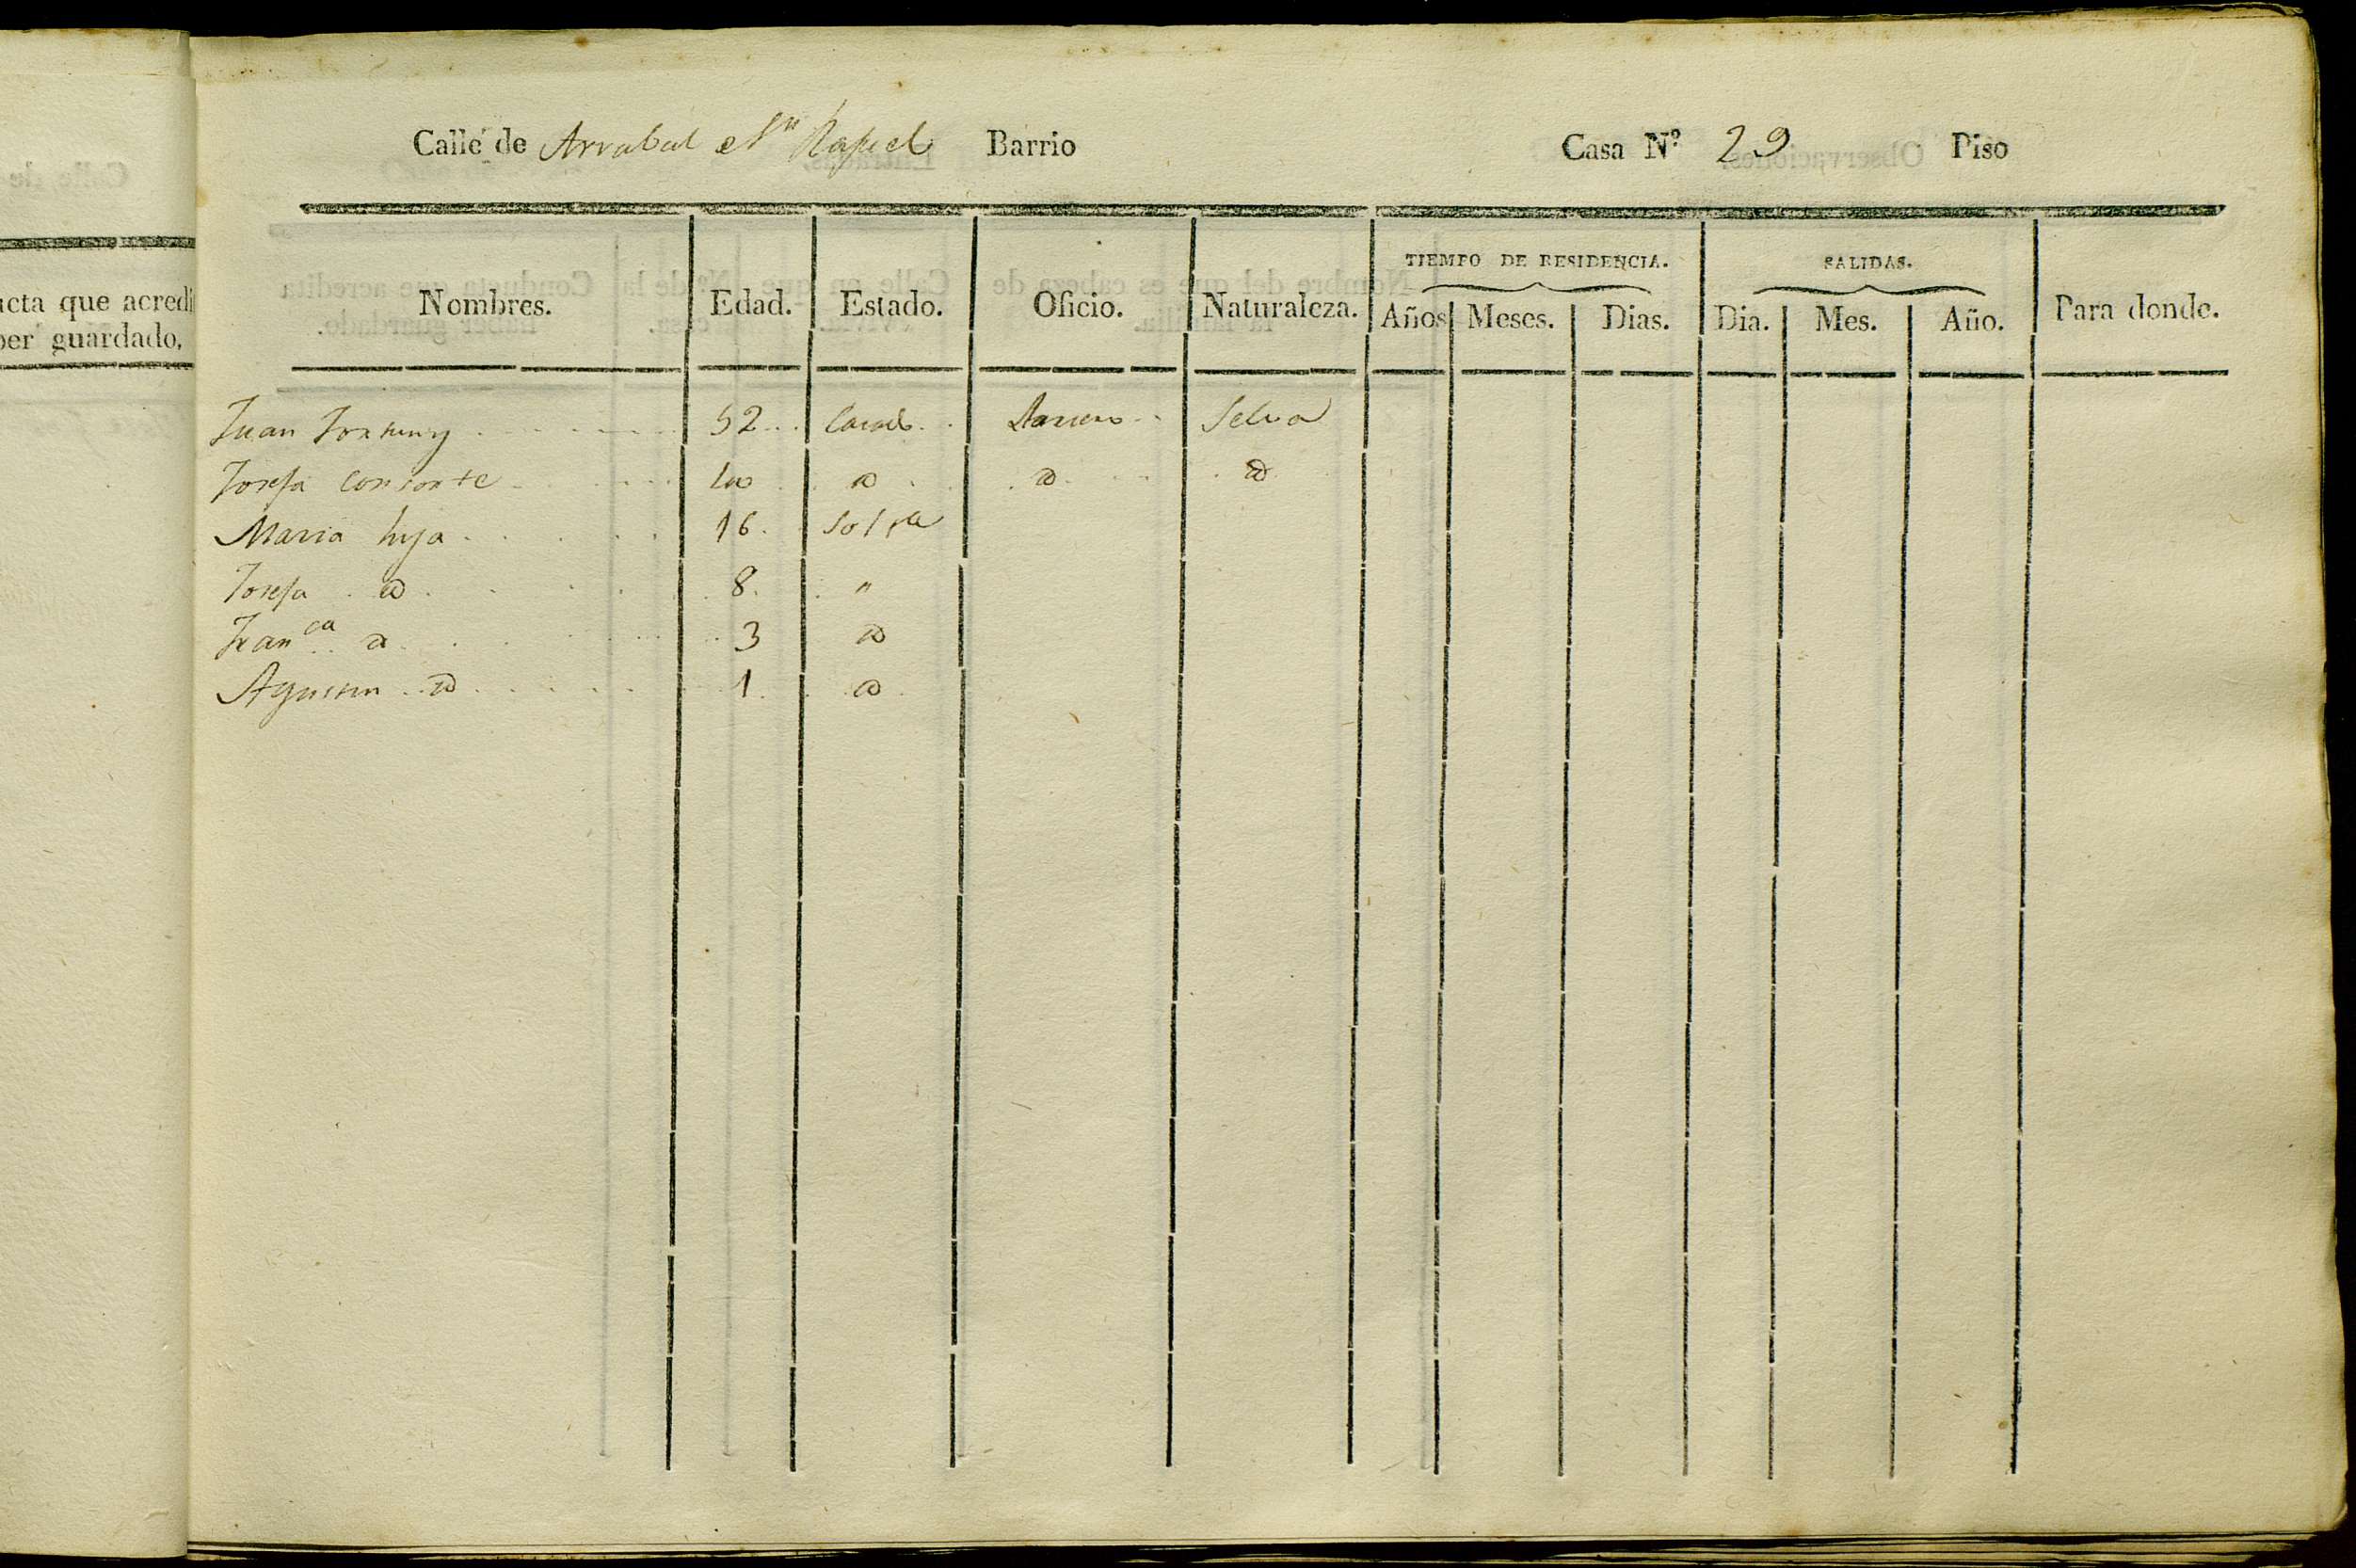 Calle de Arrabal Sn Rafael Barrio Casa Nº 29 Piso
acta que acredi
ber guardado,
TIEMPO DE RESIDENCIA. SALIDAS.
Nombres. Edad. Estado. Oficio. Naturaleza. Años Meses. Dias. Dia. Mes. Año. Para donde.
Juan 52 Casado Selva
Josefa consorte
Maria hija 16 Solra
Josefa 8 "
Franca 3
Agustin 1